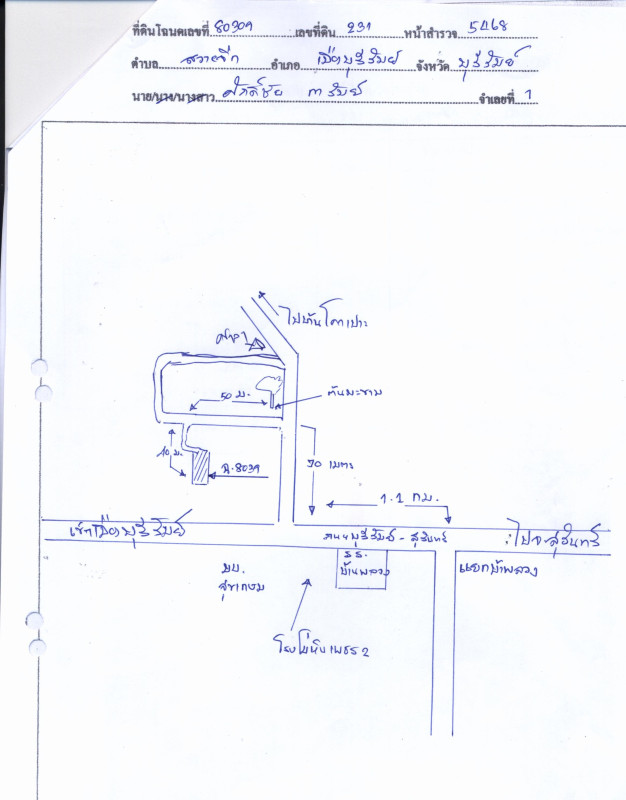 ที่ดินโฉนดเลขที่ 80309 เลขที่ดิน 231 หน้าสำรวจ 5468
ตำบล สวายจีก อำเภอ เมืองบุรีรัมย์ จังหวัด บุรีรัมย์
นาย/นาง/นางสาว ศักดิ์ชัย จำเลยที่ 1
ไปบ้านโคกเปาะ
ศาลา
50 ม.
ต้นมะขาม
40 ม.
ฉ.80309
70 เมตร
1.1 กม.
เข้าเมืองบุรีรัมย์
ถนนบุรีรัมย์ - สุรินทร์
ไป จ.สุรินทร์
รร.
บ้านพลวง
แยกบ้านพลวง
มบ.
โรงโม่หินเพชร 2